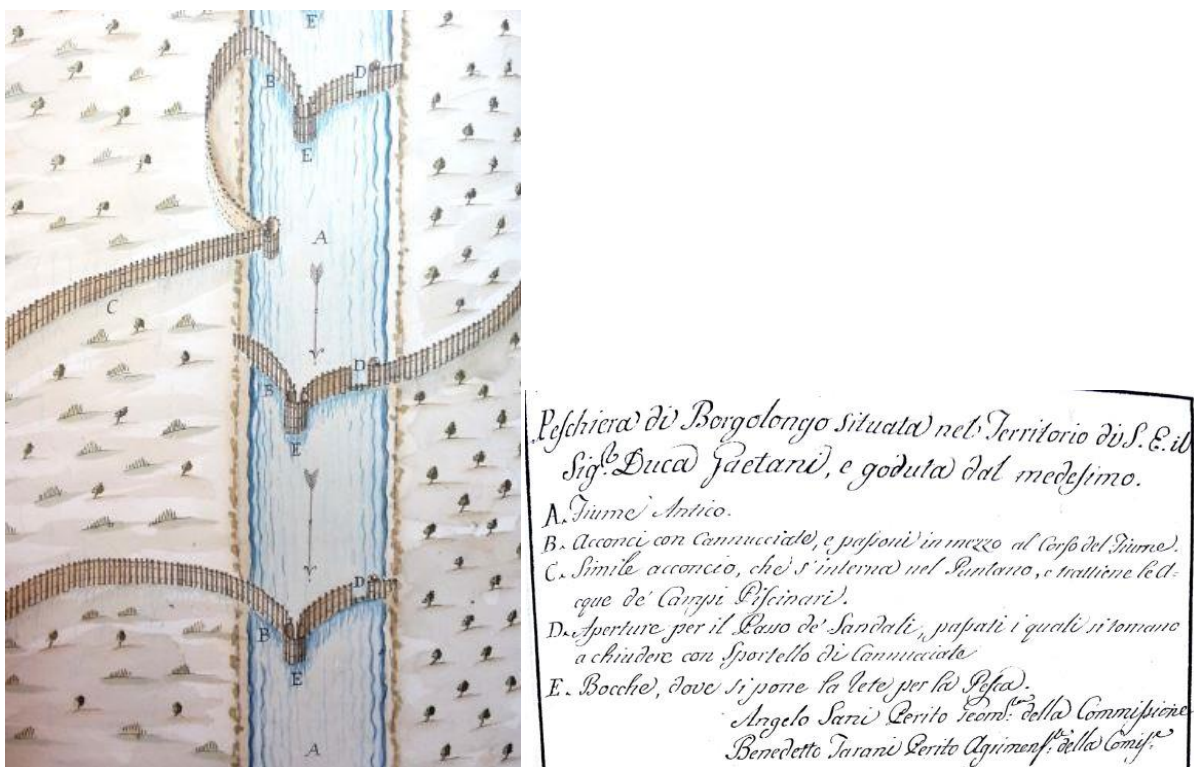 E
D
B
E
A
C
D
B
E
D
B
E
A
Peschiera di Borgolongo situata nel Territorio di S. E. il
Sig.re Duca Gaetani, e goduta dal medesimo.
A. Fiume Antico.
B. Acconci con Cannucciate, e passoni in mezzo al Corso del Fiume.
C. Simile acconcio, che s'interna nel Pantano, e trattiene le A-
cque de' Campi Piscinari.
D. Aperture per il Passo de' Sandali, passati i quali si tornano
a chiudere con Sportello di Cannucciate
E. Bocche, dove si pone la Rete per la Pesca.
Angelo Sani Perito Geom. della Commissione
Benedetto Tarani Perito Agrimens. della Comis.e